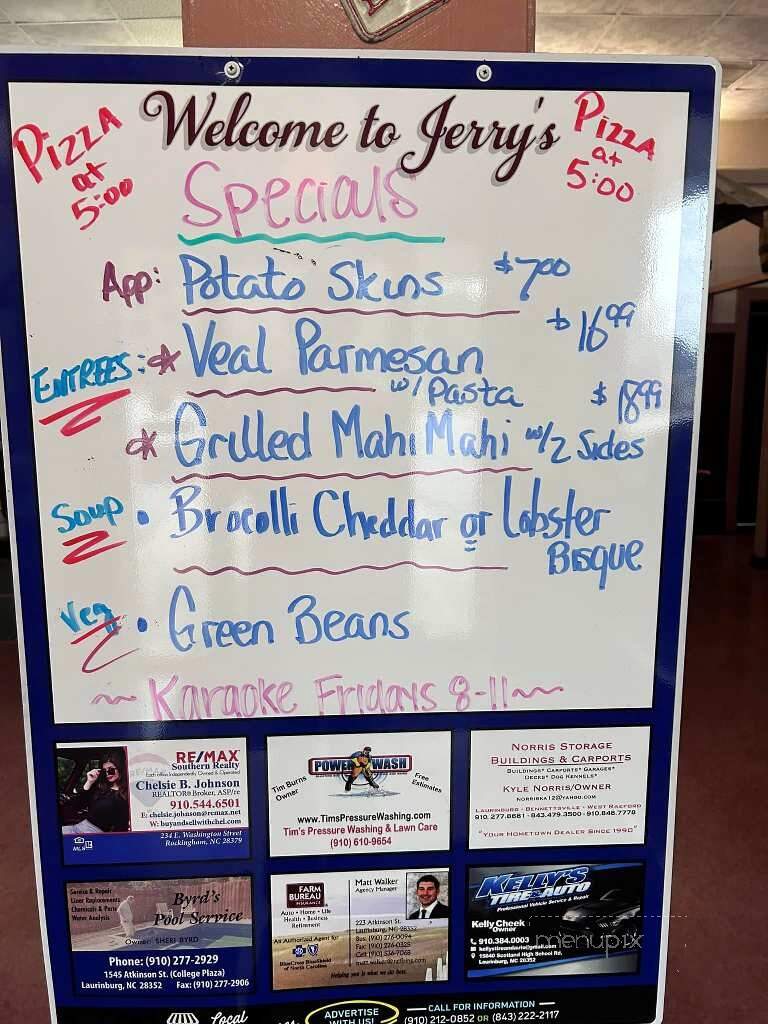 Welcome to Jerry's
Pizza at 5:00
Pizza at 5:00
Specials
App: Potato Skins $7.00
Entrees: * Veal Parmesan w/ Pasta $16.99
* Grilled Mahi Mahi w/2 Sides $18.99
Soup • Brocolli Cheddar or Lobster Bisque
Veg • Green Beans
~ Karaoke Fridays 8-11 ~
RE/MAX
Southern Realty
Each office Independently Owned & Operated
Chelsie B. Johnson
REALTOR® Broker, ASP/re
910.544.6501
E: chelsie.johnson@remax.net
W: buyandsellwithchel.com
234 E. Washington Street
Rockingham, NC 28379
POWER WASH
Tim Burns
Owner
Free
Estimates
www.TimsPressureWashing.com
Tim's Pressure Washing & Lawn Care
(910) 610-9654
Norris Storage
Buildings & Carports
Buildings* Carports* Garages*
Decks* Dog Kennels*
Kyle Norris/Owner
norriska12@yahoo.com
Laurinburg - Bennettsville - West Raeford
910.277.8681 - 843.479.3500 - 910.848.7778
"Your Hometown Dealer Since 1990"
Service & Repair
Liner Replacements
Chemicals & Parts
Water Analysis
Byrd's
Pool Service
Owner: SHERI BYRD
Phone: (910) 277-2929
1545 Atkinson St. (College Plaza)
Laurinburg, NC 28352 Fax: (910) 277-2906
FARM
BUREAU
INSURANCE
Auto • Home • Life
Health • Business
Retirement
An Authorized Agent for
BlueCross BlueShield
of North Carolina
Matt Walker
Agency Manager
223 Atkinson St.
Laurinburg, NC 28352
Bus: (910) 276-0094
Fax: (910) 276-0325
Helping you is what we do best.
KELLY'S
TIRE & AUTO
Professional Vehicle Service & Repair
Kelly Cheek
Owner
910.384.0003
kellystireandauto@gmail.com
15840 Scotland High School Rd,
Laurinburg, NC 28352
menupix
Local
ADVERTISE
WITH US!
CALL FOR INFORMATION
(910) 212-0852 OR (843) 222-2117